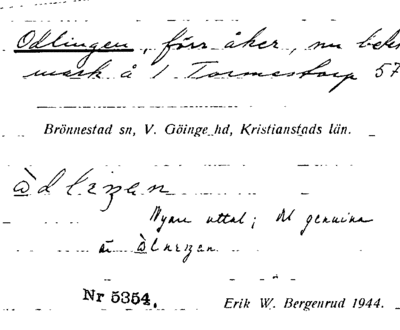 Odlingen, förr åker, nu bete
mark å 1 Tormestorp 57
Brönnestad sn, V. Göinge hd, Kristianstads län.
Nyare uttal; det genuina
är
Nr 5354.
Erik W. Bergenrud 1944.